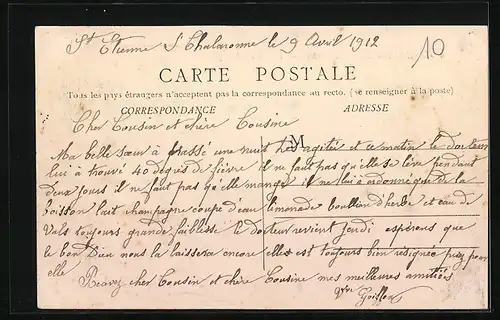 St Etienne S/ Chalaronne le 9 Avril 1912
10
CARTE POSTALE
Tous les pays étrangers n'acceptent pas la correspondance au recto. (se renseigner à la poste)
CORRESPONDANCE
ADRESSE
M
Cher Cousin et chère Cousine
Ma belle sœur à passé une nuit très agitée et ce matin le Docteur
lui à trouvé 40 degrés de fièvre il ne faut pas qu'elle se lève pendant
deux jours il ne faut pas qu'elle mange il ne lui à ordonné que de la
boisson lait champagne coupé d'eau limonade bouillon d'herbe et eau de
Vals toujours grande faiblesse le docteur revient Jeudi espérons que
le bon Dieu nous la laissera encore elle est toujours bien resignée priez pour
elle
Recevez cher Cousin et chère Cousine mes meilleures amitiés
Vve